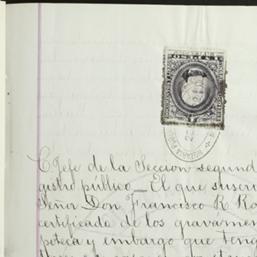 C. Jefe de la Seccion segund
gistro público_ El que suscri
Señor Don Francisco R Ro
certificado de los gravamen
poteca y embargo que teng